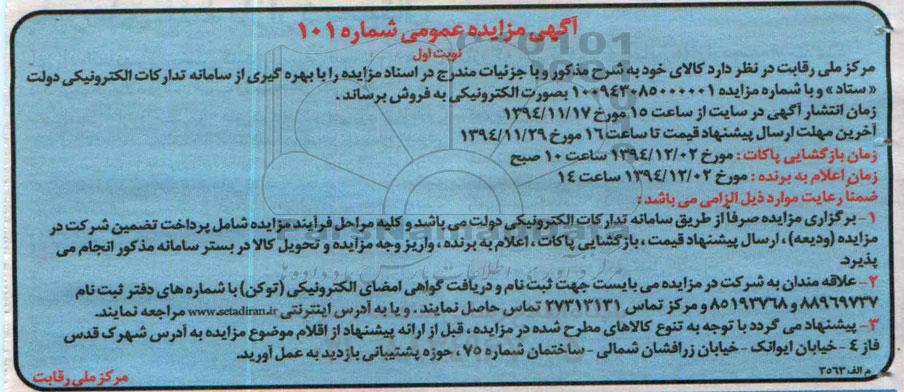 آگهی مزایده عمومی شماره ۱۰۱
نوبت اول
مرکز ملی رقابت در نظر دارد کالای خود به شرح مذکور و با جزئیات مندرج در اسناد مزایده را با بهره گیری از سامانه تدارکات الکترونیکی دولت
« ستاد » و با شماره مزایده ۱۰۰۹۴۳۰۸۵۰۰۰۰۰۱ بصورت الکترونیکی به فروش برساند .
زمان انتشار آگهی در سایت از ساعت ۱۵ مورخ ۱۳۹۴/۱۱/۱۷
آخرین مهلت ارسال پیشنهاد قیمت تا ساعت ۱۶ مورخ ۱۳۹۴/۱۱/۲۹
زمان بازگشایی پاکات : مورخ ۱۳۹۴/۱۲/۰۲ ساعت ۱۰ صبح
زمان اعلام به برنده : مورخ ۱۳۹۴/۱۲/۰۲ ساعت ۱۴
ضمناً رعایت موارد ذیل الزامی می باشد :
۱- برگزاری مزایده صرفاً از طریق سامانه تدارکات الکترونیکی دولت می باشد و کلیه مراحل فرآیند مزایده شامل پرداخت تضمین شرکت در
مزایده (ودیعه) ، ارسال پیشنهاد قیمت ، بازگشایی پاکات ، اعلام به برنده ، واریز وجه مزایده و تحویل کالا در بستر سامانه مذکور انجام می
پذیرد.
۲- علاقه مندان به شرکت در مزایده می بایست جهت ثبت نام و دریافت گواهی امضای الکترونیکی (توکن) با شماره های دفتر ثبت نام
۸۸۹۶۹۷۳۷ و ۸۵۱۹۳۷۶۸ و مرکز تماس ۲۷۳۱۳۱۳۱ تماس حاصل نمایند . و یا به آدرس اینترنتی www.setadiran.ir مراجعه نمایند.
۳- پیشنهاد می گردد با توجه به تنوع کالاهای مطرح شده در مزایده ، قبل از ارائه پیشنهاد از اقلام موضوع مزایده به آدرس شهرک قدس
فاز ۴ - خیابان ایوانک - خیابان زرافشان شمالی - ساختمان شماره ۷۵ ، حوزه پشتیبانی بازدید به عمل آورید.
م الف ۳۵۶۳
مرکز ملی رقابت